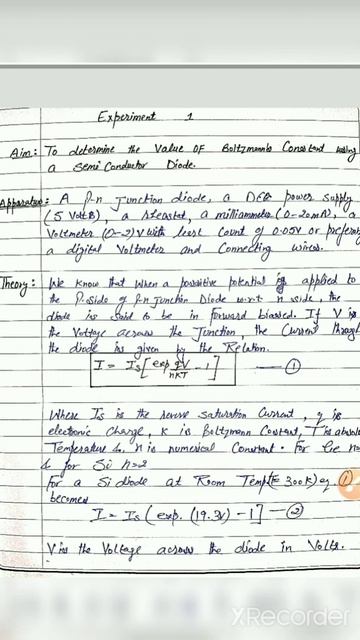 Experiment 1
Aim: To determine the Value OF Boltzmann's Constant using
a Semi Conductor Diode.
Apparatus: A P-n Junction diode, a power supply
(5 Volts), a rheostat, a milliammeter (0-20mA),
Voltmeter (0-2)V with least Count of 0.05V or
a digital Voltmeter and Connecting wires.
Theory: We Know that when a possitive potential is applied to
the P.side of P-n Junction Diode w.r.t n side, the
diode is said to be in forward biased. If V is
the Voltage across the Junction, the Current through
the diode is given by the Relation.
I = Is [exp qV/nKT - 1] — ①
Where Is is the reverse saturation Current, q is
electronic Charge, K is Boltzmann Constant, T is
Temperature & n is numerical Constant. For Ge n=
& for Si n=2
For a Si diode at Room Temp(T= 300K) eq. ①
becomes
I = Is (exp. (19.3V) - 1] — ②
V is the Voltage across the diode in Volts.
XRecorder